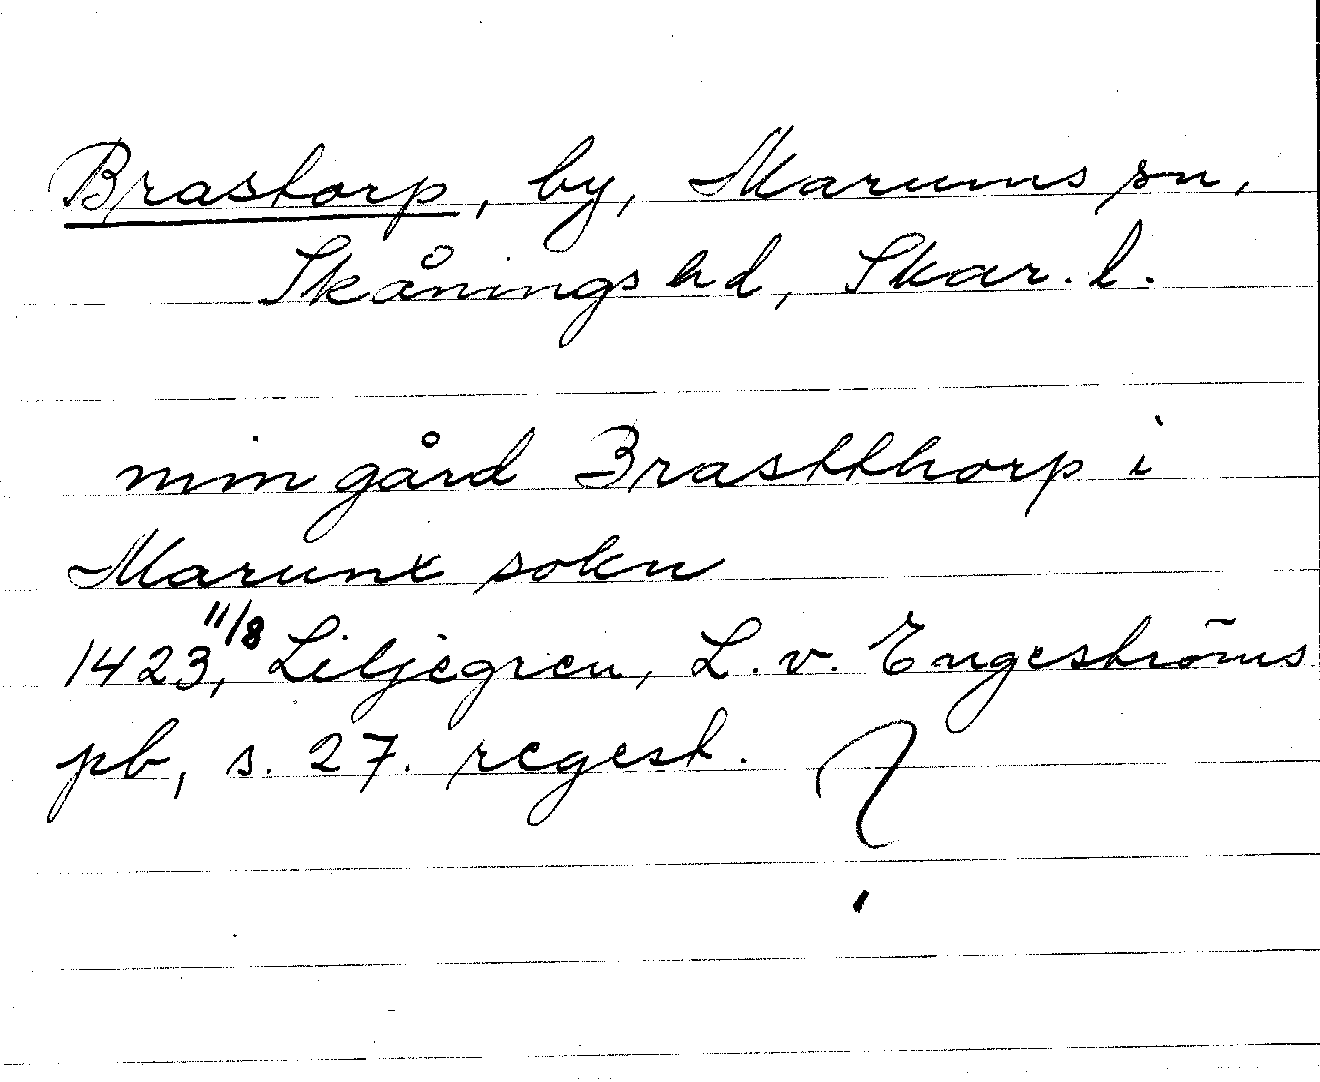 Brastorp, by, Marums sn,
Skånings hd, Skar. l.
min gård Brastthorp i
Marunx sokn
1423, 11/8 Liljegren, L. v. Engeströms
pb, s. 27. regest. ?